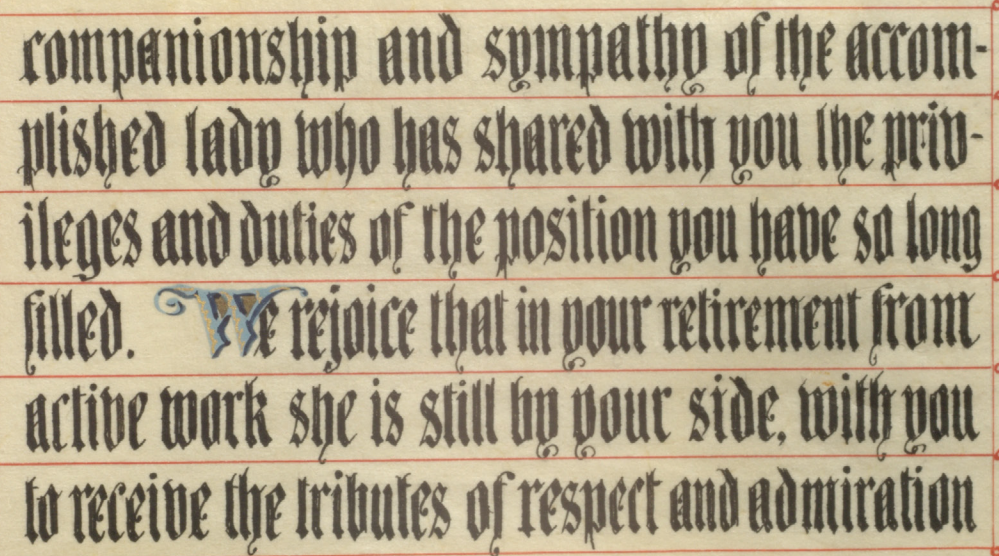 companionship and sympathy of the accom-
plished lady who has shared with you the priv-
ileges and duties of the position you have so long
filled. We rejoice that in your retirement from
active work she is still by your side, with you
to receive the tributes of respect and admiration